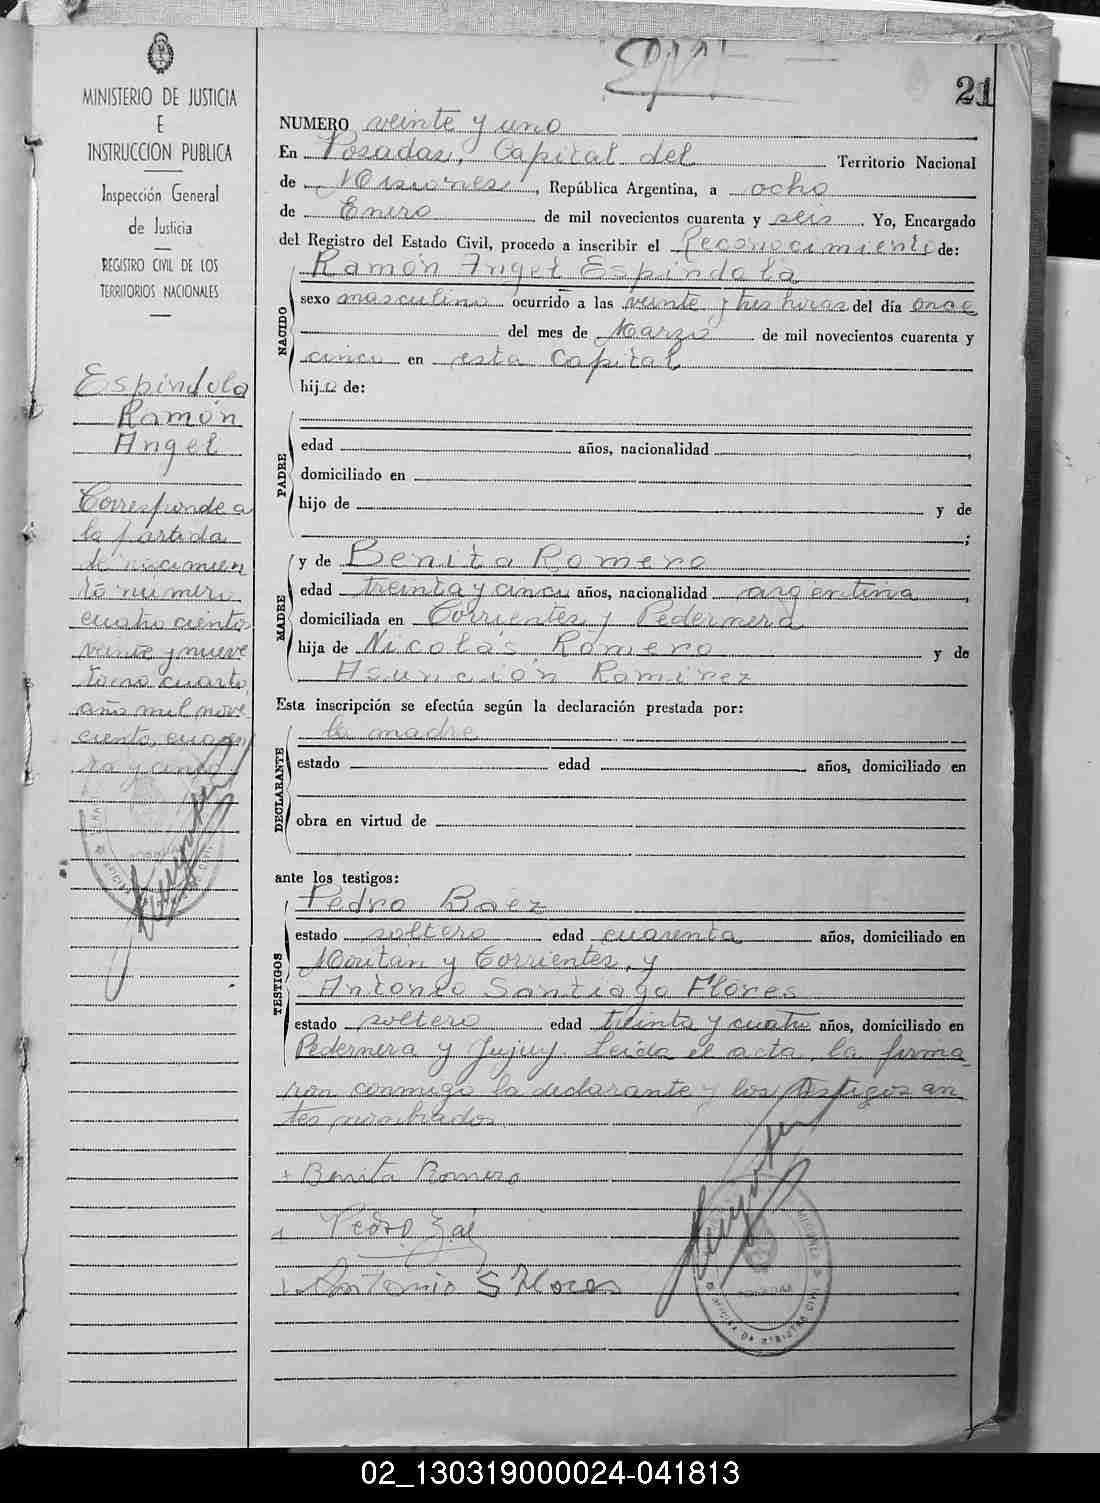 21
MINISTERIO DE JUSTICIA
E
INSTRUCCION PUBLICA
Inspección General
de Justicia
REGISTRO CIVIL DE LOS
TERRITORIOS NACIONALES
Espíndola
Ramón
Angel
Corresponde a
la partida
de nacimien
to numero
cuatrocientos
veinte y nueve
tomo cuarto
año mil nove
cientos cuaren
ta y cinco
NUMERO veinte y uno
En Posadas, Capital del Territorio Nacional
de Misiones, República Argentina, a ocho
de Enero de mil novecientos cuarenta y seis. Yo, Encargado
del Registro del Estado Civil, procedo a inscribir el Reconocimiento de:
NACIDO
Ramón Angel Espíndola
sexo masculino ocurrido a las veinte y tres horas del día once
del mes de Marzo de mil novecientos cuarenta y
cinco en esta Capital
hijo de:
PADRE
edad años, nacionalidad
domiciliado en
hijo de y de
;
MADRE
y de Benita Romero
edad treinta y cinco años, nacionalidad argentina,
domiciliada en Corrientes y Pedernera
hija de Nicolás Romero y de
Asunción Ramírez
Esta inscripción se efectúa según la declaración prestada por:
DECLARANTE
la madre
estado edad años, domiciliado en
obra en virtud de
ante los testigos:
TESTIGOS
Pedro Baez
estado soltero edad cuarenta años, domiciliado en
y Corrientes, y
Antonio Santiago Flores
estado soltero edad treinta y cuatro años, domiciliado en
Pedernera y Jujuy. Leída el acta, la firma
ron conmigo la declarante y los testigos an
tes nombrados
+ Benita Romero
Pedro
Antonio S Flores
MISIONES
OFICINA DE REGISTRO CIVIL
02_130319000024-041813